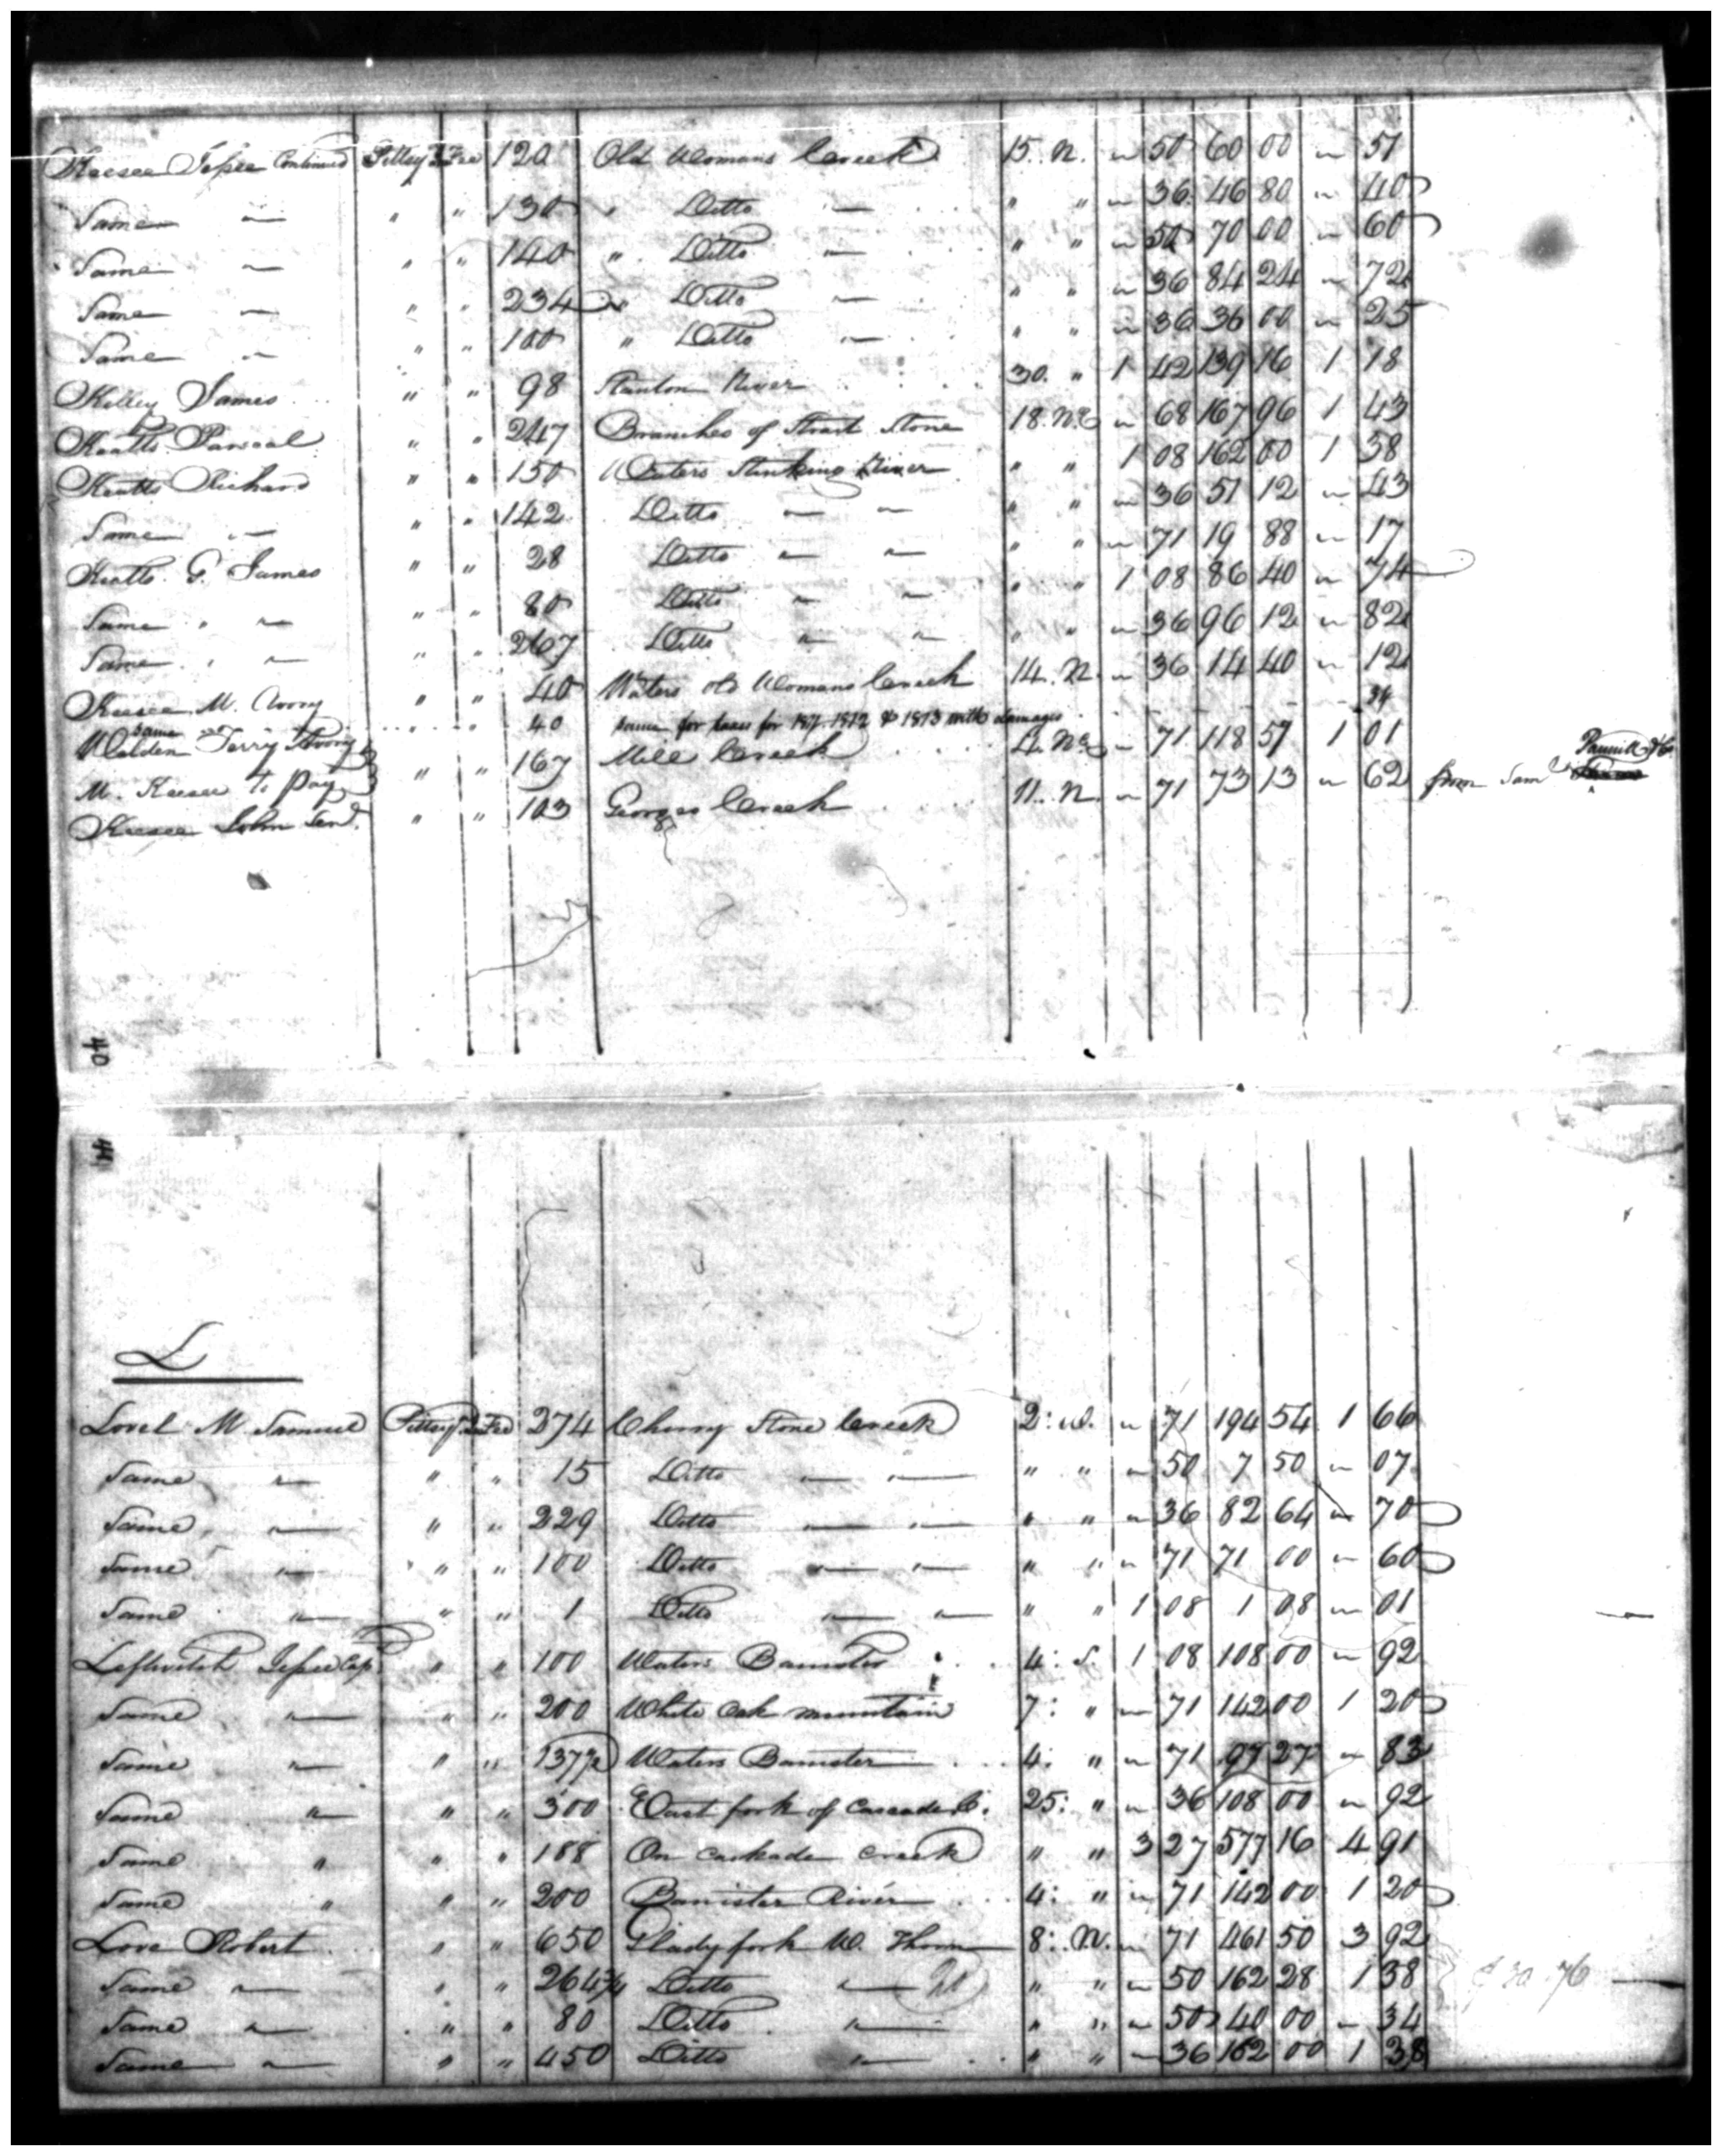 Keesee Jesse Continued Pittsya Fee 120 Old Womans Creek 15. N. " 50 60 00 " 51
Same " " " 130 " Ditto " " " " 36 46 80 " 40
Same " " " 140 " Ditto " " " " 50 70 00 " 60
Same " " " 234 " Ditto " " " " 36 84 24 " 72
Same " " " 100 " Ditto " " " " 36 36 00 " 25
Kelley James " " 98 Stanton River 30. " 1 42 139 16 1 18
Keatts Pascal " " 247 Branches of Strait Stone 18. N.E " 68 167 96 1 43
Keatts Richard " " 150 Waters Stinking River " " 1 08 162 00 1 38
Same " " " 142 Ditto " " " " " 36 51 12 " 43
Keatts G. James " " 28 Ditto " " " " " 71 19 88 " 17
Same " " " " 80 Ditto " " " " 1 08 86 40 " 74
Same " " " " 267 Ditto " " " " " 36 96 12 " 82
Keesee M. Avory " " 40 Waters old Womans Creek 14. N. " 36 14 40 " 12
same 40 same for taxes for 1812 & 1813 with damages 34
Walden Terry Avory
M. Keesee To pay " " 167 Mill Creek 4. N.E " 71 118 57 1 01
Keesee John Senr. " " 103 Georges Creek 11. N. " 71 73 13 " 62 from Saml Pannill &Co.
40
41
L
Lovel M Samuel Pittsya Fee 274 Cherry Stone Creek 2: W. " 71 194 54 1 66
Same " " " 15 Ditto " " " " " 50 7 50 " 07
Same " " " 229 Ditto " " " " " 36 82 64 " 70
Same " " " 100 Ditto " " " " " 71 71 00 " 60
Same " " " 1 Ditto " " " " 1 08 1 08 " 01
Leftwitch Jesse Cap " " 100 Waters Banister 4: S. 1 08 108 00 " 92
Same " " " 200 White Oak mountain 7: " " 71 142 00 1 20
Same " " " 137 1/2 Waters Banister 4: " " 71 97 27 " 83
Same " " " 300 East fork of Cascade C. 25: " " 36 108 00 " 92
Same " " " 188 On caskade creek " " 3 27 577 16 4 91
Same " " " 200 Banister River 4: " " 71 142 00 1 20
Love Robert " " 650 Glady fork W. Thorn 8: N. " 71 461 50 3 92
Same " " " 264 3/4 Ditto " " " " 50 162 28 1 38
Same " " " 80 Ditto " " " " 50 40 00 " 34
Same " " " 450 Ditto " " " " 36 162 00 1 38